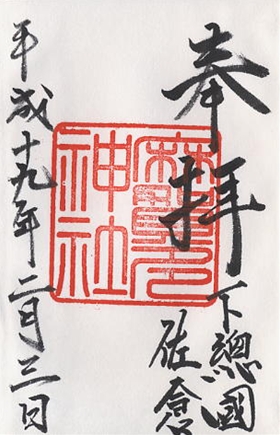 奉拝
下總國
佐倉
麻賀多
神社
平成十九年二月三日